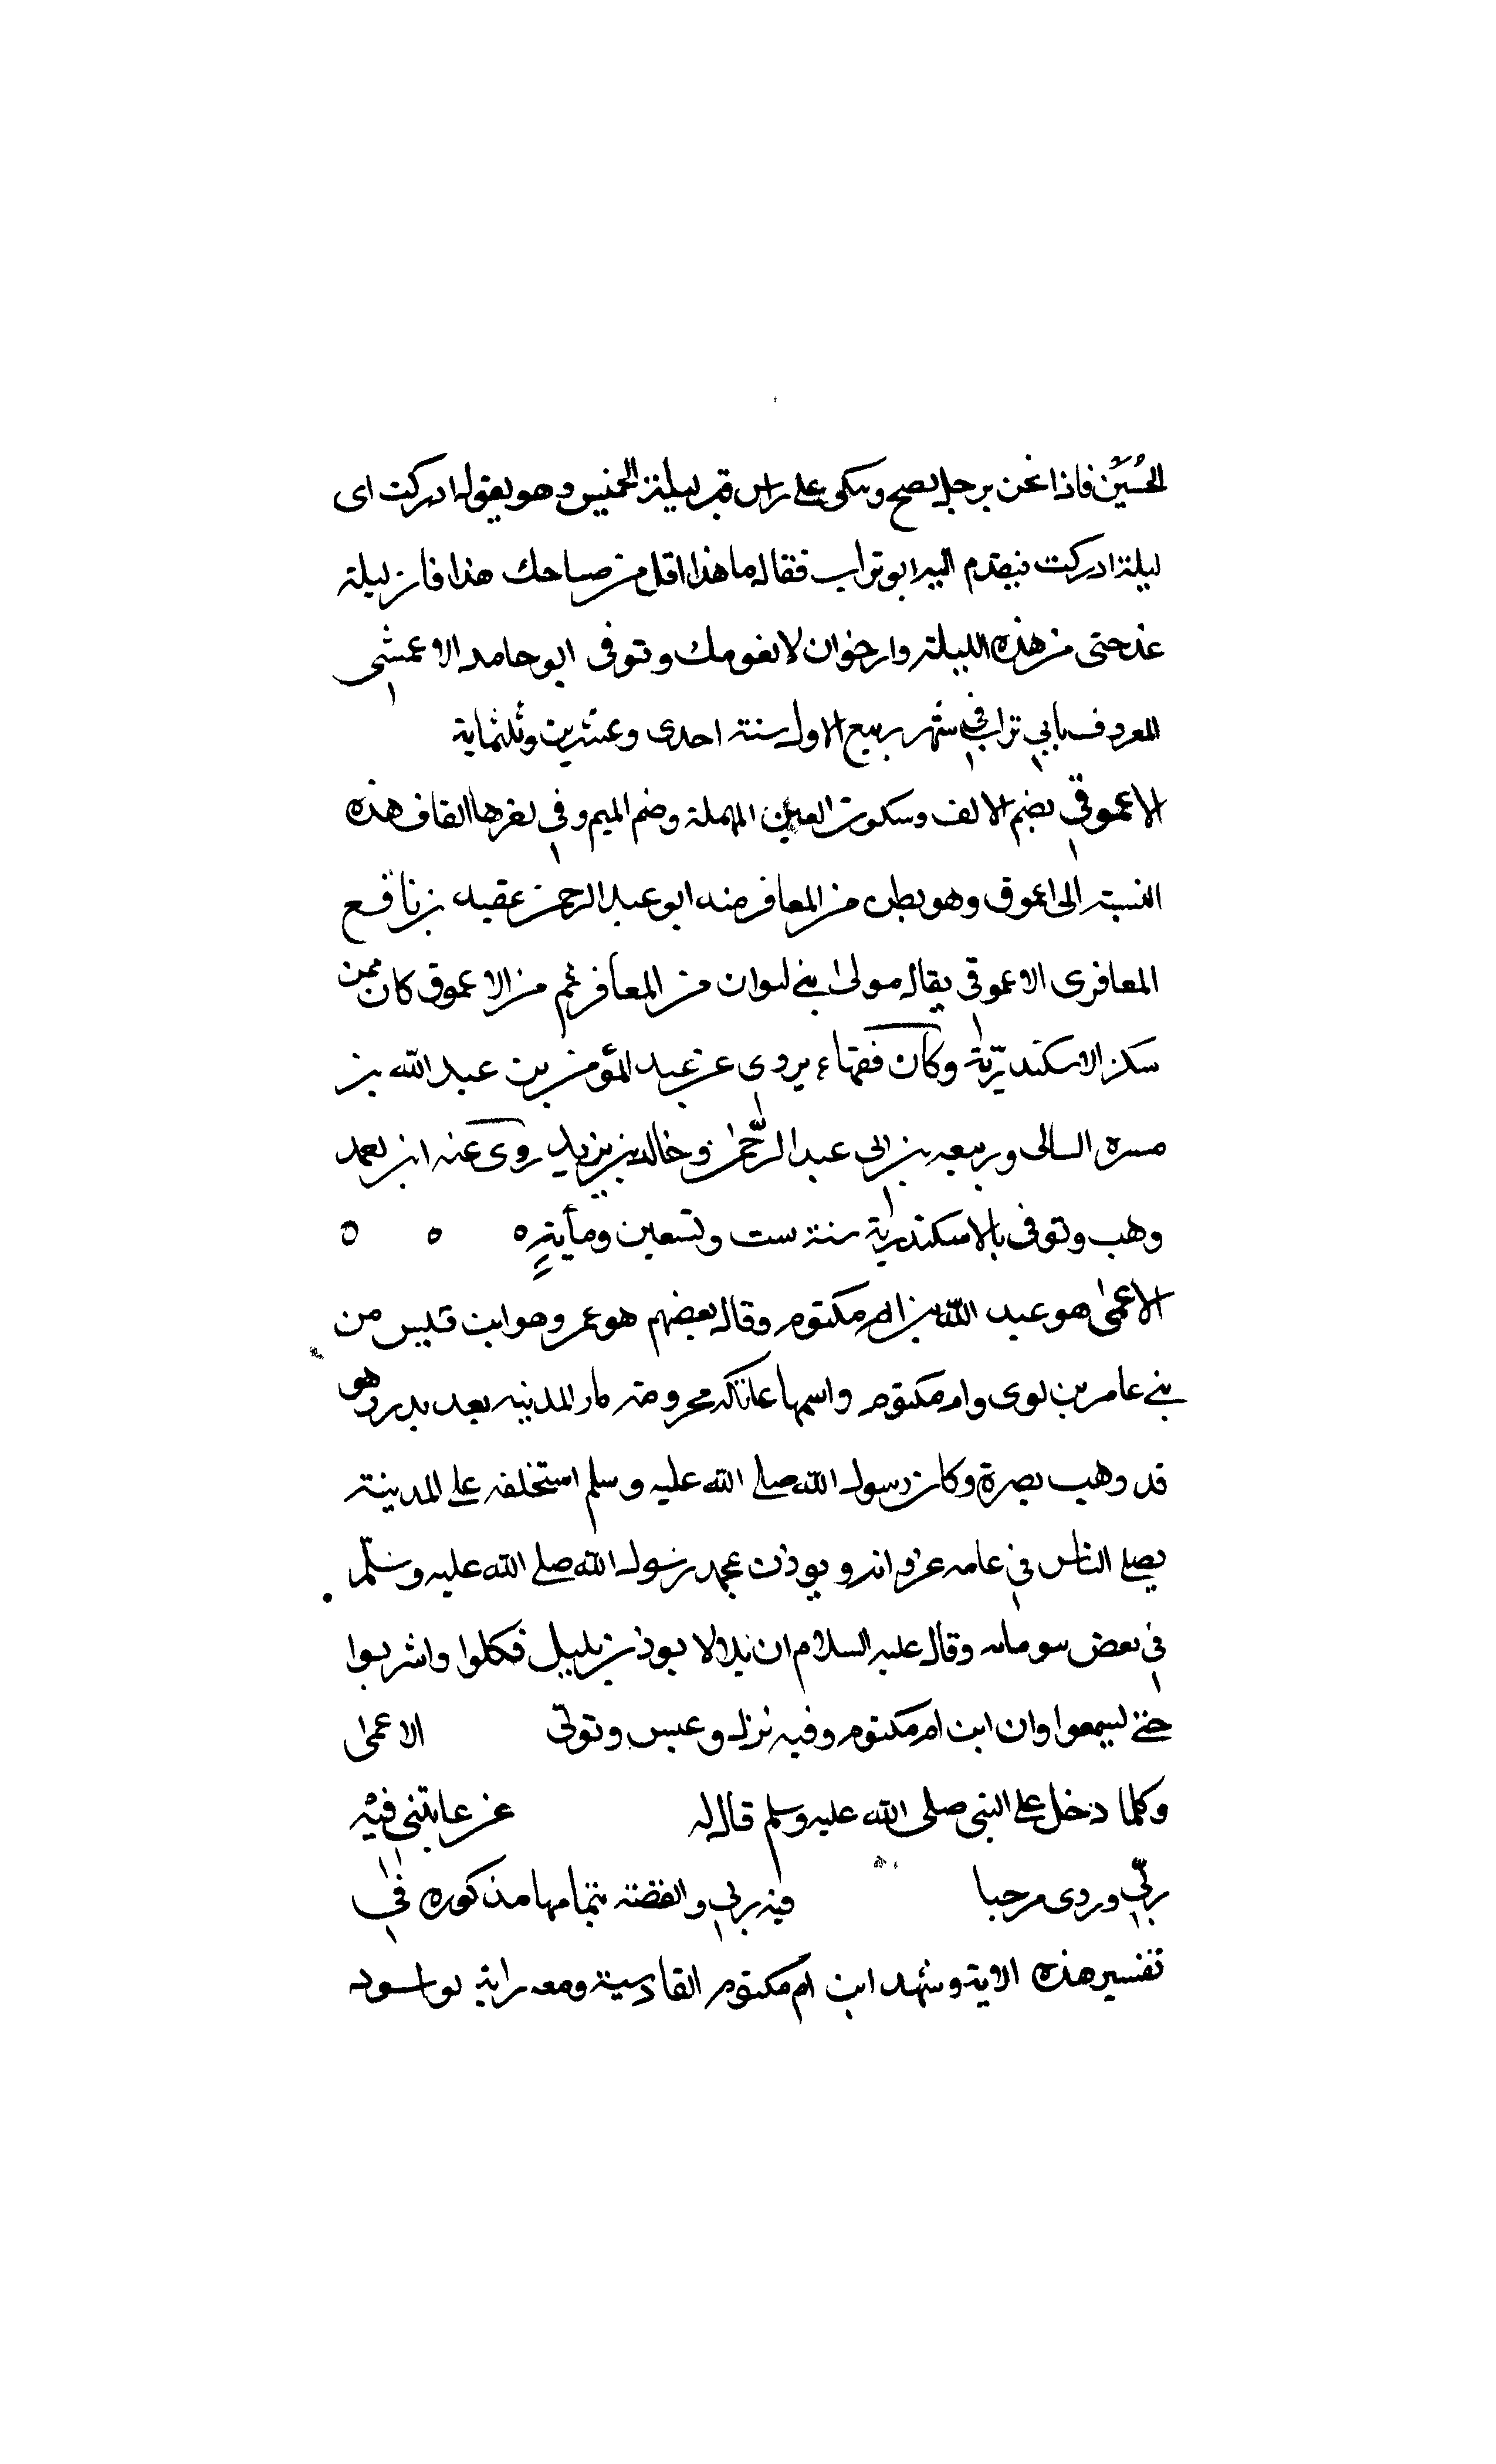 الحُسَيْن فاذا نحن برجل يصح وسكى على راس قبر ليلة الخميس وهو يقول ادركت اى
ليلة ادركت فتقدم اليه ابو تراب فقال ما هذا اقل من صياحك هذا فان ليلة
هذه الليلة وار خوان لا تقومك وتوفى ابو حامد الاعمشى
المعروف بابي تراب في شهر ربيع الاول سنة احدى وعشرين وثلثماية
الاعموقي بضم الالف وسكون العين المهملة وضم الميم وفي القاف هذه
النسبة الى اعموق وهو بطن من المعافر منه ابو عبد الرحمن عقبه بن نافع
المعافرى الاعموقي يقال مولى بني لىوان من المعافر ثم من الاعموق كان ممن
سكن الاسكندريّة وكان فقيها يروى عن عبد المؤمن بن عبد الله بن
وربيعه بن ابي عبد الرَّحمن وخالد بن يزيد روى عنه
وهب وتوفى بالاسكندرية سنة ست وتسعين ومأية ه ه ه
الاعمى هو عبد الله بن ام مكتوم وقال بعضهم هو عمرو هو ابن قيس من
بني عامر بن لوى وام مكتوم واسمها عاتكه المدينه بعد بدر وهو
قد وهب بصرة وكان رسول الله صلى الله عليه وسلم استخلفه على المدينة
يصلى الناس في عامه ويوذن عهد رسول الله صلى الله عليه وسلّم
في بعض وقال عليه السلام ان بلالا يوذن بليل فكلوا واشربوا
حتى تسمعوا وان ابن ام مكتوم وفيه نزل وعبس وتولّى الاعمى
وكلما دخل على النبى صلى الله عليه وسلم قال له عن عاتبني فيْه
ربّي وردى مرحبا فيه ربي والقصة بتمامها مذكوره في
تفسير هذه الاية وشهد ابن ام مكتوم القادسية ومعه راية